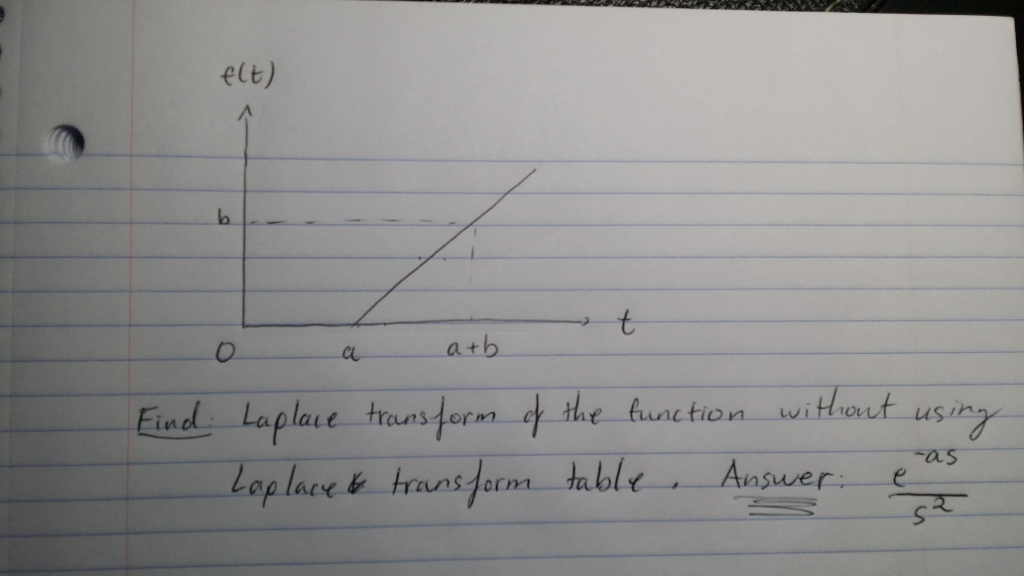 f(t)
b
0 a a+b t
Find: Laplace transform of the function without using
Laplace transform table. Answer: e^-as / s^2